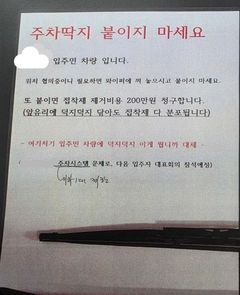 주차딱지 붙이지 마세요
입주민 차량 입니다.
위치 협의중이니 필요하면 와이퍼에 껴 놓으시고 붙이지 마세요.
또 붙이면 접착제 제거비용 200만원 청구합니다.
(앞유리에 덕지덕지 닦아도 접착제 다 분포됩니다)
- 여기저기 입주민 차량에 덕지덕지 이게 뭡니까 대체 -
주차시스템 문제로, 다음 입주자 대표회의 참석예정)